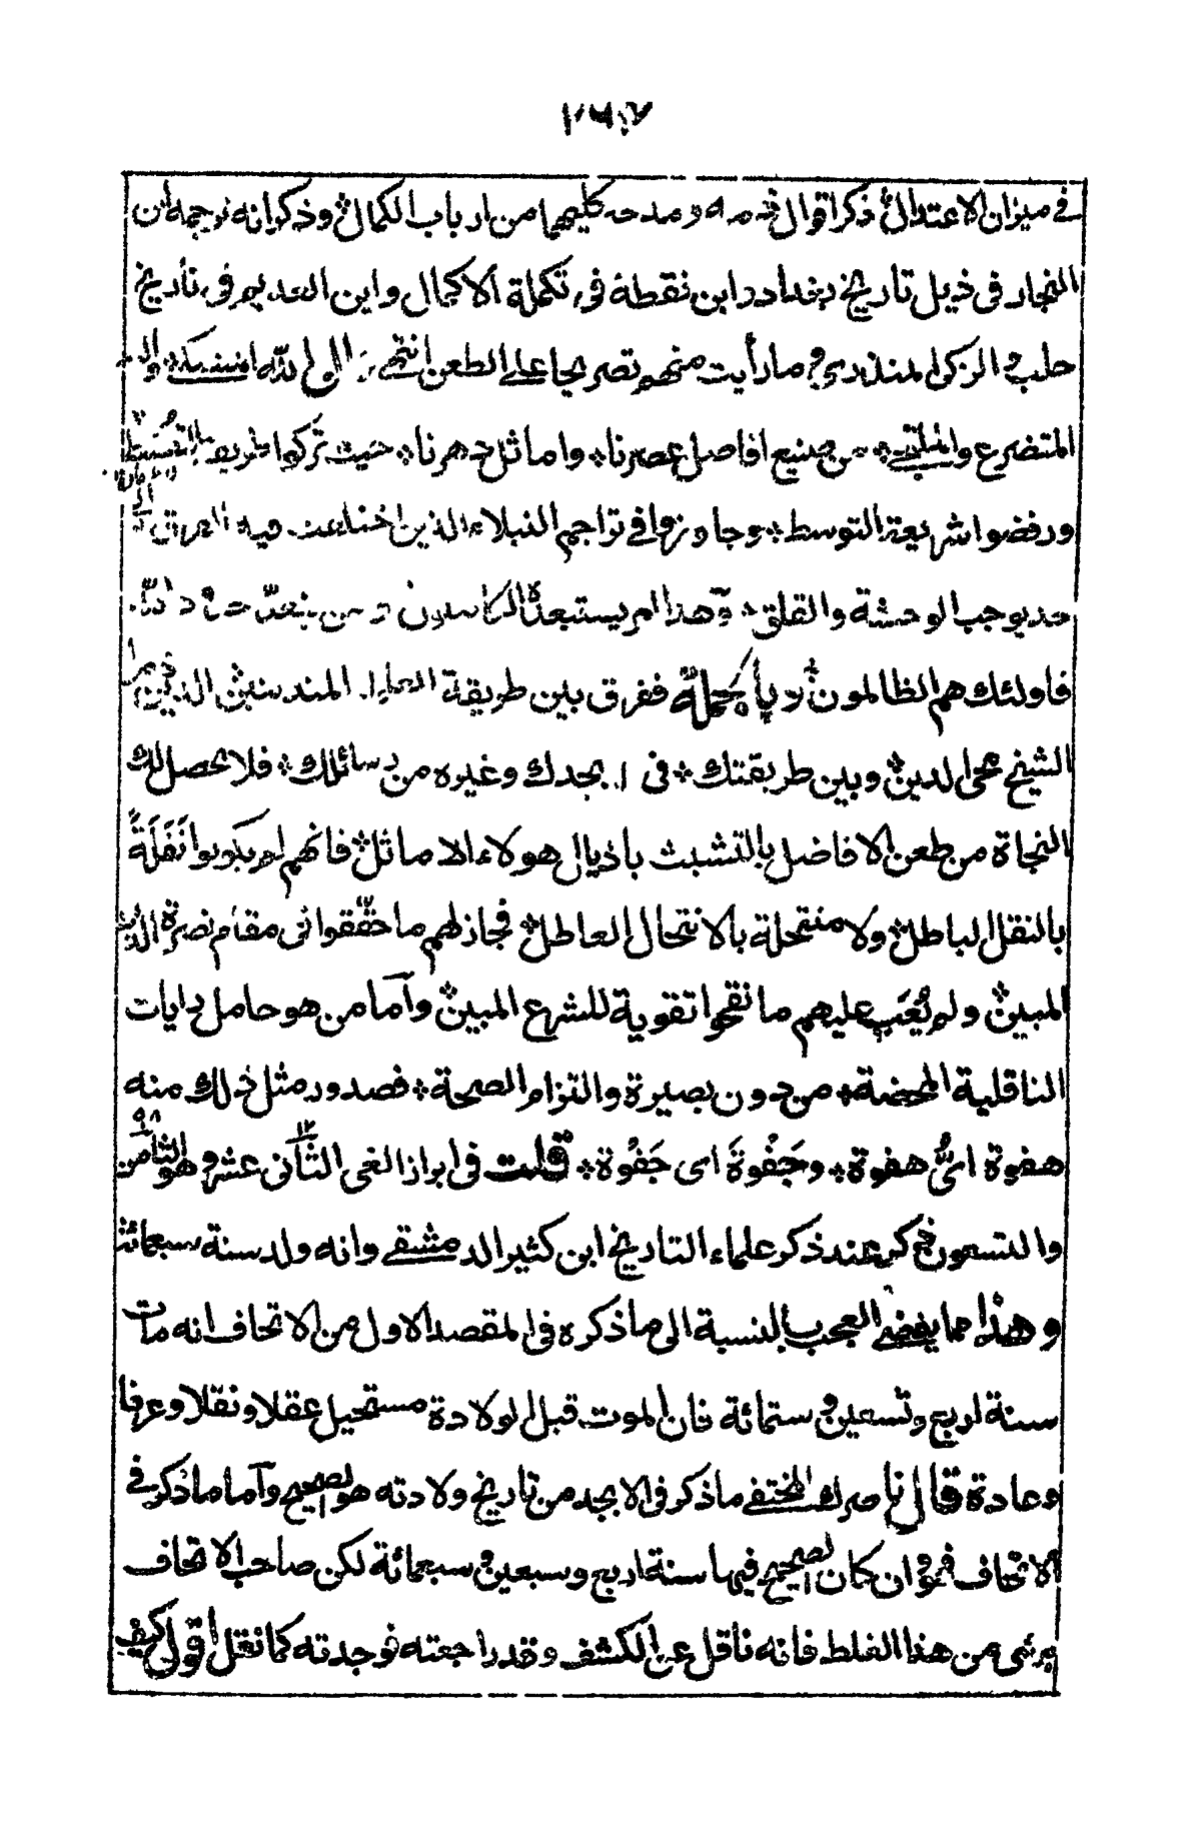 ٢٦٧
في ميزان الاعتدال ذكر اقوال ذمه ومدحه كليهما من ارباب الكمال وذكر انه ترجمه ابن
النجار في ذيل تاريخ بغداد وابن نقطة في تكملة الاكمال وابن العديم في تاريخ
حلب والزكي المنذري وما رأيت منهم تصريحا على الطعن انتهى والى الله المشتكى
المتضرع والملتجى من صنيع افاضل عصرنا واماثل دهرنا حيث تركوا طريقة
ورفضوا شريعة التوسط وجاوزوا في تراجم النبلاء الذين اختلفت فيه الفرق
حد يوجب الوحشة والقلق وهذا امر يستبعده الكاملون ومن يتعد حدود الله
فاولئك هم الظالمون وبالجملة ففرق بين طريقة العلماء المتدينين الذين
الشيخ محي الدين وبين طريقتك في ابجدك وغيره من رسائلك فلا يحصل لك
النجاة من طعن الافاضل بالتشبث باذيال هولاء الاماثل فانهم لم يكونوا نَقَلَةً
بالنقل الباطل ولا منتحلة بالانتحال العاطل فجاز لهم ما حققوا في مقام نصرة الدين
المبين ولم يُعَب عليهم ما نقحوا تقوية للشرع المبين وآما من هو حامل رايات
الناقلية المحضة من دون بصيرة والتزام الصحة فصدور مثل ذلك منه
هفوة اىُّ هفوة وجَفْوة اى جَفْوة قلت في ابراز الغى الثاني عشر وهو الثامن
٩٨ ١٢
والتسعون ذكر عند ذكر علماء التاريخ ابن كثير الدمشقي وانه ولد سنة سبعمائة
وهذا مما يفضي العجب بالنسبة الى ما ذكره في المقصد الاول من الاتحاف انه مات
سنة اربع وتسعين وستمائة فان الموت قبل الولادة مستحيل عقلا ونقلا وعرفا
وعادة قال ناصرك المختفي ما ذكر في الابجد من تاريخ ولادته هو الصحيح وآما ما ذكر في
الاتحاف فهو ان كان الصحيح فيها سنة اربع وسبعين وسبعمائة لكن صاحب الاتحاف
برئ من هذا الغلط فانه ناقل عن الكشف وقد راجعته فوجدته كما نقل اقول كيف